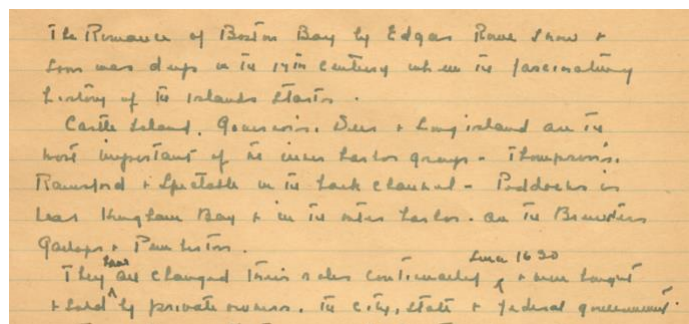 The Romance of Boston Bay by Edgar Rowe Snow +
soon was deep in the 17th century when the fascinating
history of the Islands starts.
Castle Island, Governors, Deer + Long island are the
most important of the inner harbor group - Thompson's,
Rainsford + Spectacle in the back channel - Peddocks in
near Hingham Bay + in the outer harbor. are the Brewsters
Gallops + Pemberton.
They have all changed their roles continually since 1630 + were bought
+ sold by private owners, the city, state + federal government.